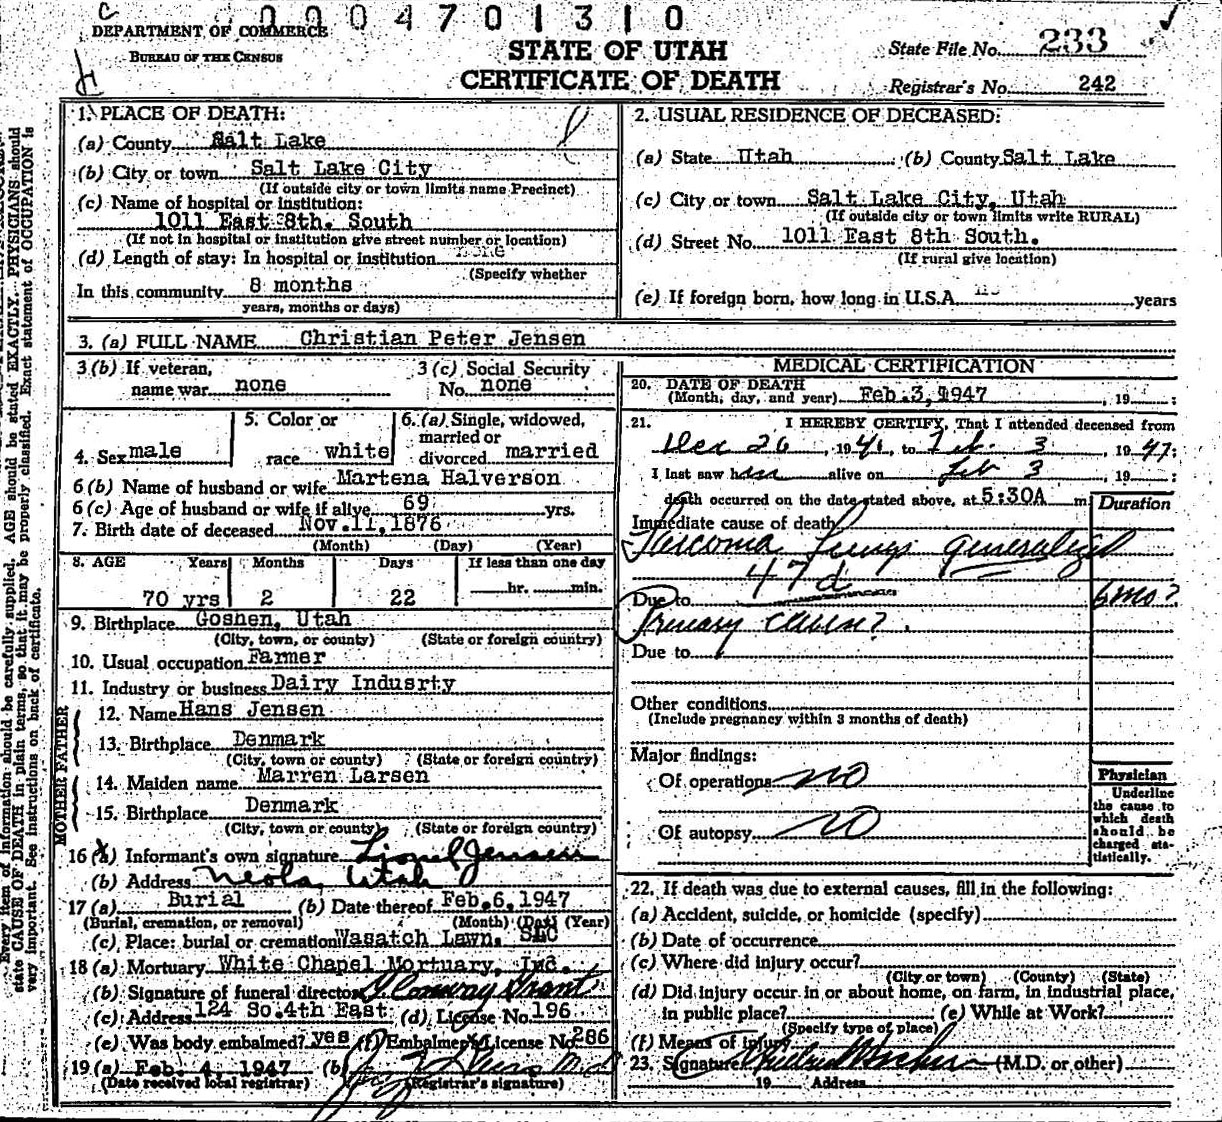 0004701310
DEPARTMENT OF COMMERCE
BUREAU OF THE CENSUS
STATE OF UTAH
CERTIFICATE OF DEATH
State File No. 233
Registrar's No. 242
Every item of information should be carefully supplied. AGE should be stated EXACTLY. PHYSICIANS should
state CAUSE OF DEATH in plain terms, so that it may be properly classified. Exact statement of OCCUPATION is
very important. See instructions on back of certificate.
1. PLACE OF DEATH:
(a) County Salt Lake
(b) City or town Salt Lake City
(If outside city or town limits name Precinct)
(c) Name of hospital or institution:
1011 East 8th. South
(If not in hospital or institution give street number or location)
(d) Length of stay: In hospital or institution none
(Specify whether
In this community 8 months
years, months or days)
2. USUAL RESIDENCE OF DECEASED:
(a) State Utah (b) County Salt Lake
(c) City or town Salt Lake City, Utah
(If outside city or town limits write RURAL)
(d) Street No. 1011 East 8th South.
(If rural give location)
(e) If foreign born, how long in U.S.A. no years
3. (a) FULL NAME Christian Peter Jensen
3 (b) If veteran,
name war none
3 (c) Social Security
No. none
4. Sex male
5. Color or
race white
6. (a) Single, widowed,
married or
divorced married
6 (b) Name of husband or wife Martena Halverson
6 (c) Age of husband or wife if alive 69 yrs.
7. Birth date of deceased Nov. 11, 1876
(Month) (Day) (Year)
8. AGE Years Months Days If less than one day
70 yrs 2 22 hr. min.
9. Birthplace Goshen, Utah
(City, town, or county) (State or foreign country)
10. Usual occupation Farmer
11. Industry or business Dairy Indusrty
FATHER
12. Name Hans Jensen
13. Birthplace Denmark
(City, town or county) (State or foreign country)
MOTHER
14. Maiden name Marren Larsen
15. Birthplace Denmark
(City, town or county) (State or foreign country)
16 (a) Informant's own signature Lionel Jensen
(b) Address Neola, Utah
17 (a) Burial (b) Date thereof Feb. 6, 1947
(Burial, cremation, or removal) (Month) (Day) (Year)
(c) Place: burial or cremation Wasatch Lawn. SLC
18 (a) Mortuary White Chapel Mortuary, Inc.
(b) Signature of funeral director Conway Grant
(c) Address 124 So. 4th East (d) License No. 196
(e) Was body embalmed? yes (f) Embalmer's License No. 286
19 (a) Feb. 4, 1947 (b) M.D.
(Date received local registrar) (Registrar's signature)
MEDICAL CERTIFICATION
20. DATE OF DEATH
(Month, day, and year) Feb. 3, 1947, 19
21. I HEREBY CERTIFY, That I attended deceased from
Dec 26, 1946, to Feb. 3, 1947;
I last saw him alive on Feb 3, 19
death occurred on the date stated above, at 5:30A m.
Duration
Immediate cause of death
Sarcoma Lungs generalized
47d
Due to 6 mo?
Primary elsewhere?
Due to
Other conditions
(Include pregnancy within 3 months of death)
Major findings:
Of operations no
Of autopsy no
Physician
Underline
the cause to
which death
should be
charged sta-
tistically.
22. If death was due to external causes, fill in the following:
(a) Accident, suicide, or homicide (specify)
(b) Date of occurrence
(c) Where did injury occur?
(City or town) (County) (State)
(d) Did injury occur in or about home, on farm, in industrial place,
in public place? (e) While at Work?
(Specify type of place)
(f) Means of injury
23. Signature (M.D. or other)
19 Address